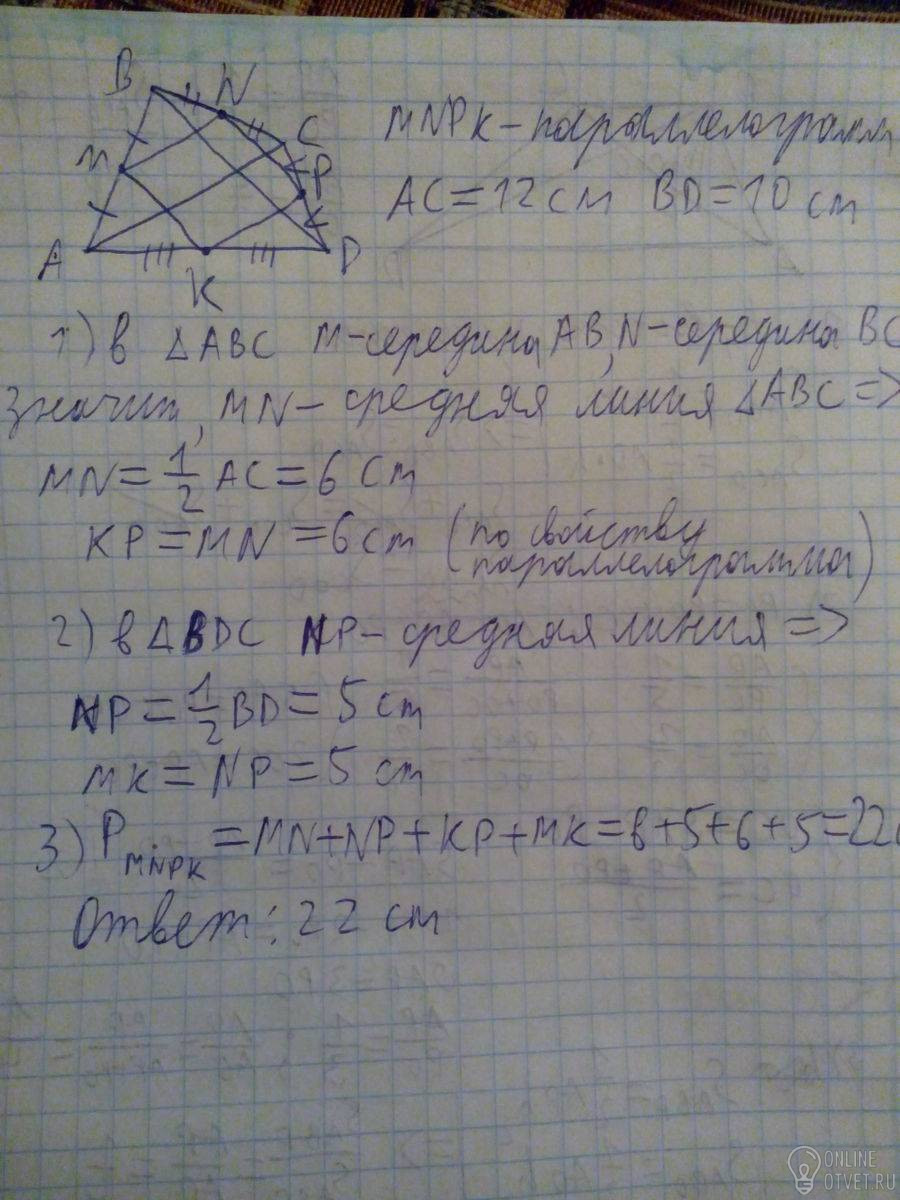 B N C P D K A M
MNPK – параллелограмм
AC = 12 см BD = 10 см
1) в △ABC M – середина AB, N – середина BC
Значит, MN – средняя линия △ABC =>
MN = 1/2 AC = 6 см
KP = MN = 6 см (по свойству
параллелограмма)
2) в △BDC NP – средняя линия =>
NP = 1/2 BD = 5 см
MK = NP = 5 см
3) P MNPK = MN + NP + KP + MK = 6 + 5 + 6 + 5 = 22
Ответ: 22 см
ONLINE
OTVET.RU